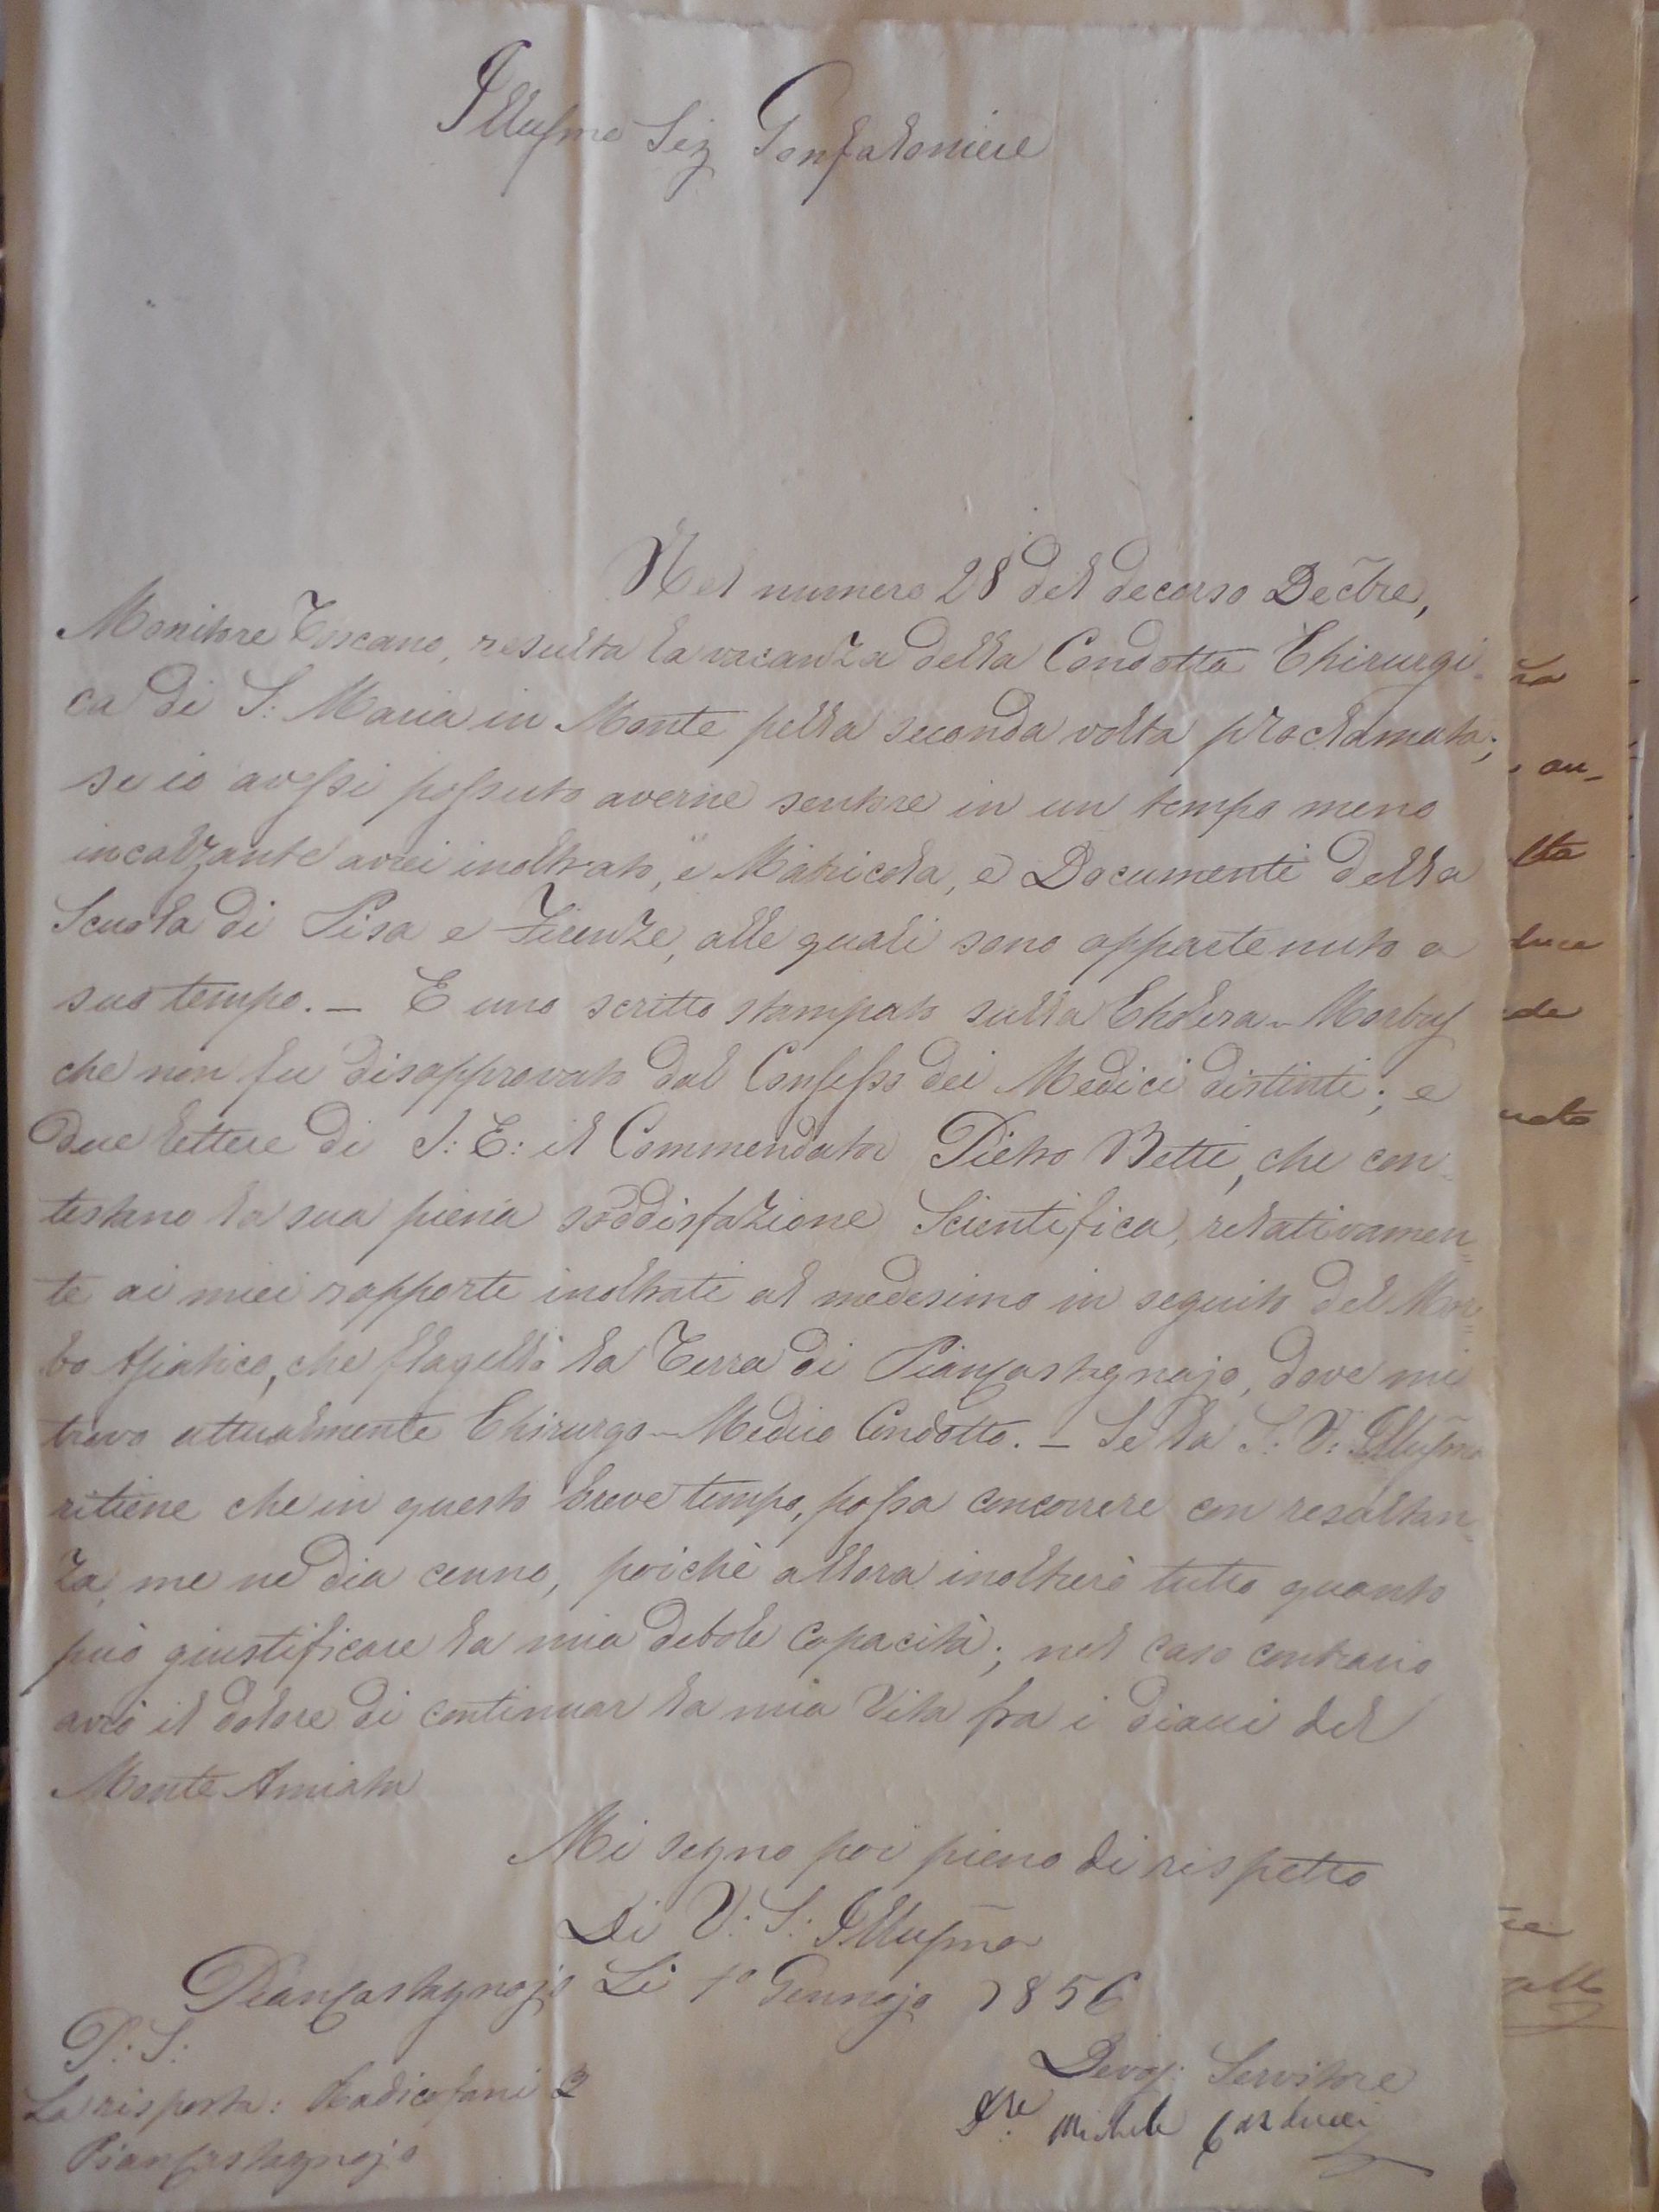 Illusmo Sig Gonfaloniere
Nel numero 28 del decorso Decbre,
Monitore Toscano, resulta la vacanza della Condotta Chirurgi-
ca di S: Maria in Monte pella seconda volta proclamata;
se io avessi possuto averne sentore in un tempo meno
incalzante avrei inoltrato, e Matricola, e Documenti della
Scuola di Pisa e Firenze, alle quali sono appartenuto a
suo tempo. – E uno scritto stampato sulla Cholera-Morbus
che non fu disapprovato dal Consesso dei Medici distinti; e
due lettere di S: E: il Commendator Pietro Betti, che con-
testano la sua piena soddisfazione Scientifica, relativamen=
te ai miei rapporti inoltrati al medesimo in seguito del Mor=
bo Asiatico, che flagellò la Terra di Piancastagnajo, dove mi
trovo attualmente Chirurgo-Medico Condotto. – Se la S: V: Illusma
ritiene che in questo breve tempo, possa concorrere con resultan=
za, me ne dia cenno, poichè allora inoltrerò tutto quanto
può giustificare la mia debole capacità; nel caso contrario
avrò il dolore di continuar la mia Vita fra i diacci del
Monte Amiata
Mi segno poi pieno di rispetto
Di V: S: Illusma
Piancastagnajo Li 1o Gennajo 1856
P: S:
La risposta: Radicofani
Piancastagnajo
Devos: Servitore
Dre Michele Carducci